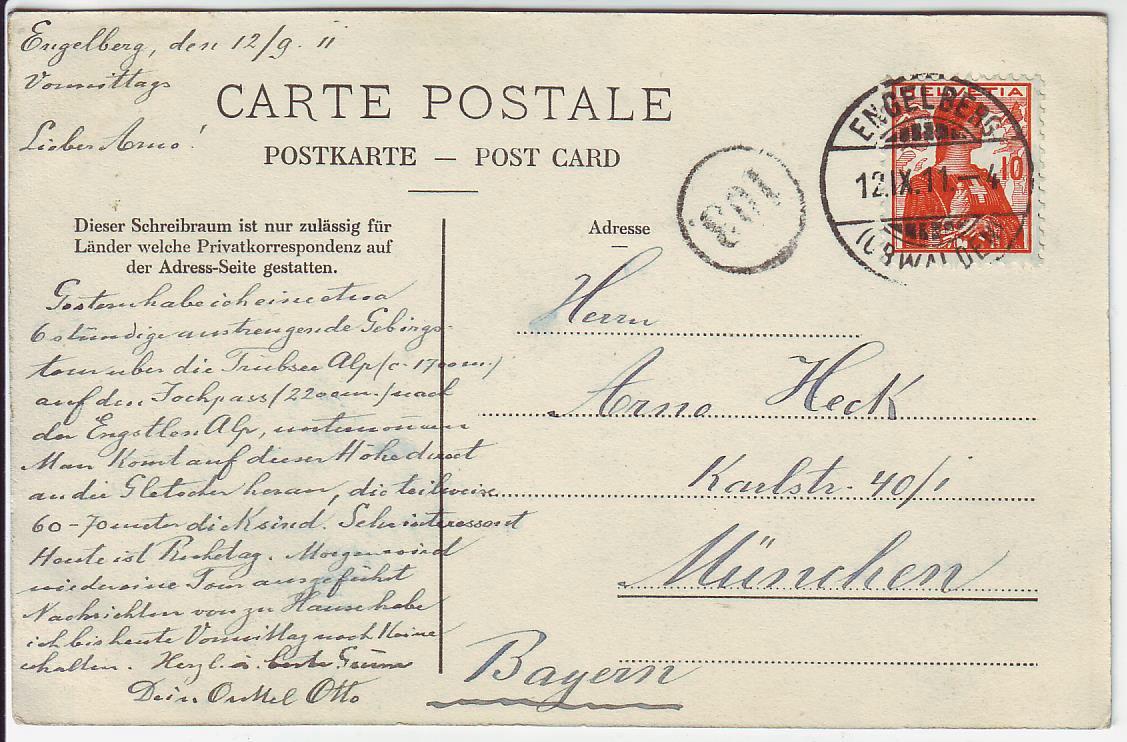 Engelberg, den 12/9. 11
Vormittags
Lieber Arno!
CARTE POSTALE
POSTKARTE — POST CARD
Dieser Schreibraum ist nur zulässig für
Länder welche Privatkorrespondenz auf
der Adress-Seite gestatten.
Gestern habe ich eine etwa
6 stündige anstrengende Gebirgs-
tour über die Trübsee Alp (c. 1700m.)
auf den Jochpass (2200m.) nach
der Engstlen Alp, unternommen
Man komt auf dieser Höhe direct
an die Gletscher heran, die teilweise
60-70 meter dick sind. Sehr interessant
Heute ist Ruhetag. Morgen wird
wieder eine Tour ausgeführt
Nachrichten von zu Hause habe
ich bis heute Vormittag noch keine
erhalten. Herzl. u. beste Grüsse
Dein Onkel Otto
HELVETIA
10
ENGELBERG
12.IX.11.–4
(OBWALDEN)
Adresse
Herrn
Arno Heck
Karlstr. 40/I
München
Bayern